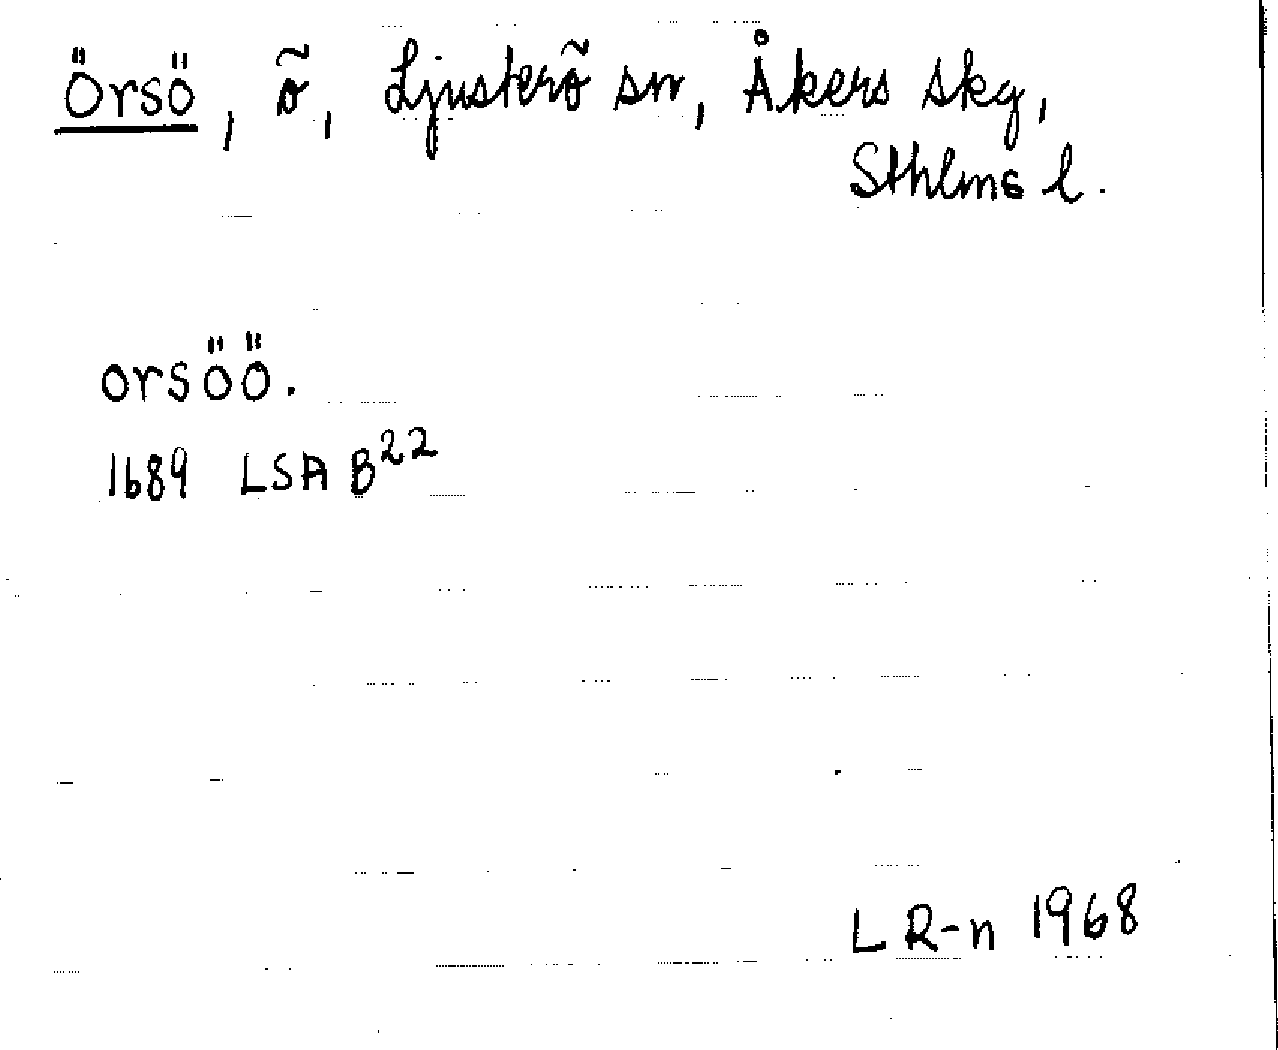 Örsö, ö, Ljusterö sn, Åkers skg,
Sthlms l.
orsöö.
1689 LSA B22
L R-n 1968